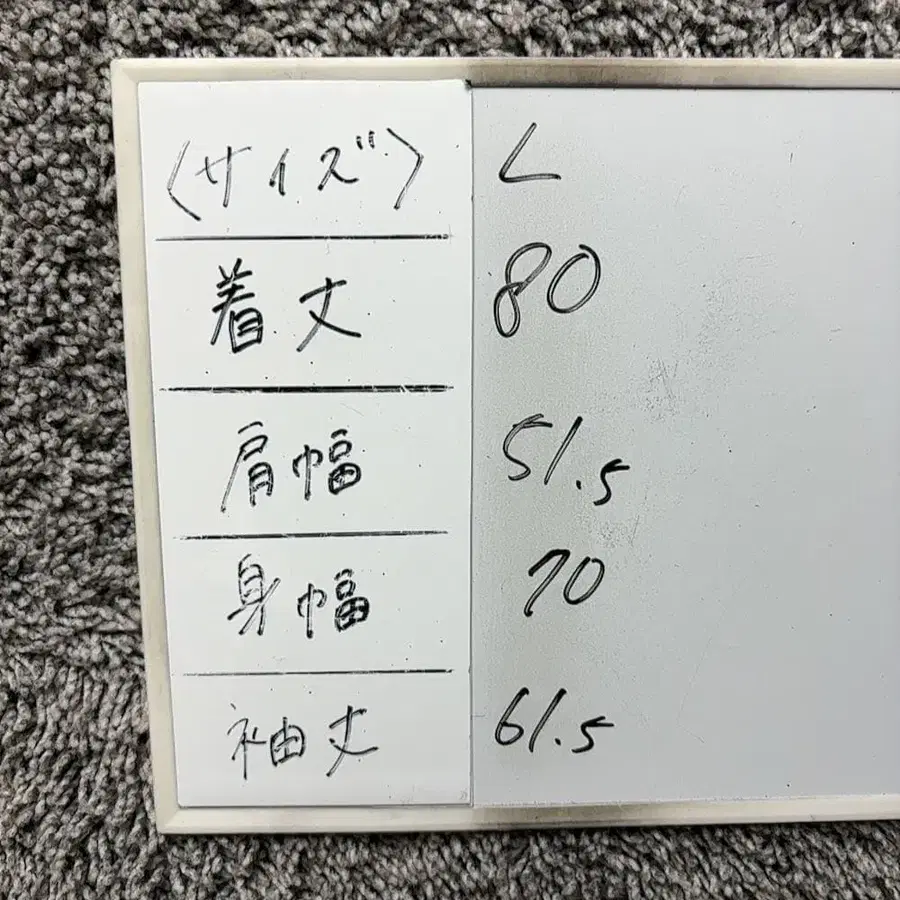 〈サイズ〉 L
着丈 80
肩幅 51.5
身幅 70
袖丈 61.5